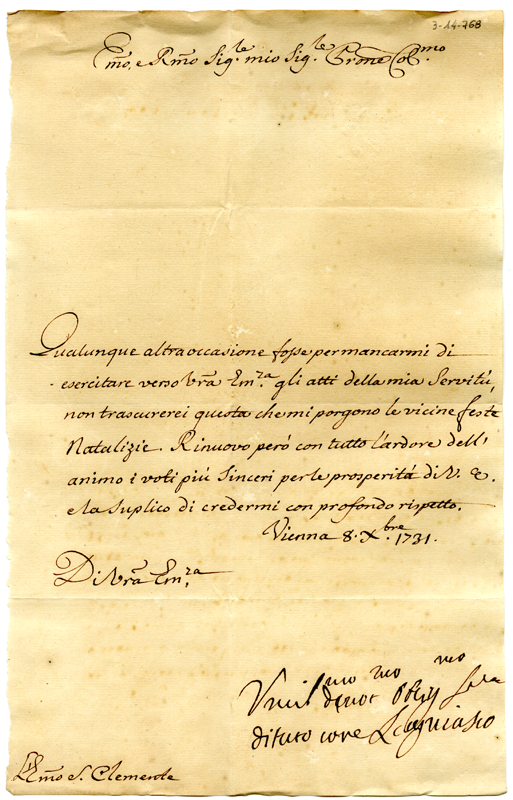 3-14-768
Emo, e Rmo Sig.le mio Sig.le Prone Col.mo
Qualunque altra occasione fosse per mancarmi di
esercitare verso Vrã Em.za gli atti della mia Servitù,
non trascurerei questa che mi porgono le vicine feste
Natalizie. Rinuovo però con tutto l'ardore dell'
animo i voti più Sinceri per le prosperità di V. E.
e la Suplico di credermi con profondo rispetto.
Vienna 8. X.bre 1731.
Di Vrã Em.za
Umil.mo devot.mo Oblig.mo
di tuto core
Emo S. Clemente